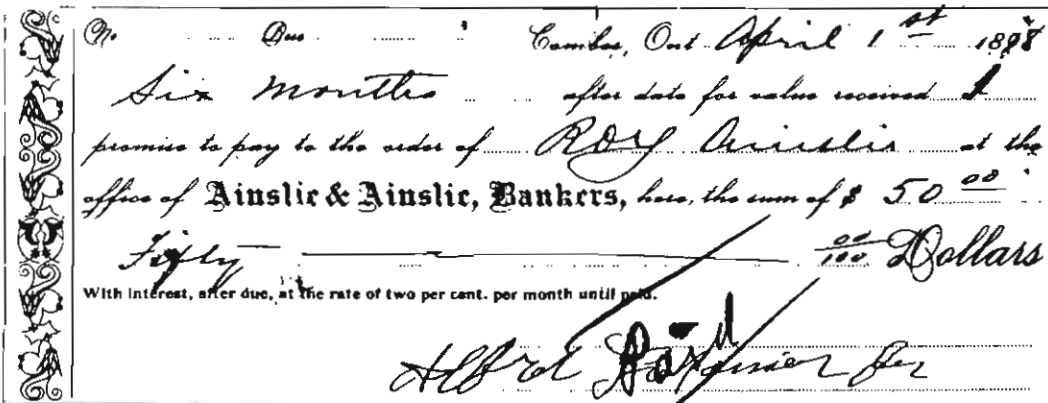 No Due Comber, Ont. April 1st 1898
Six Months after date for value received I
promise to pay to the order of Roy Ainslie at the
office of Ainslie & Ainslie, Bankers, here, the sum of $ 50 00
Fifty 00/100 Dollars
With interest, after due, at the rate of two per cent. per month until paid.
Paid